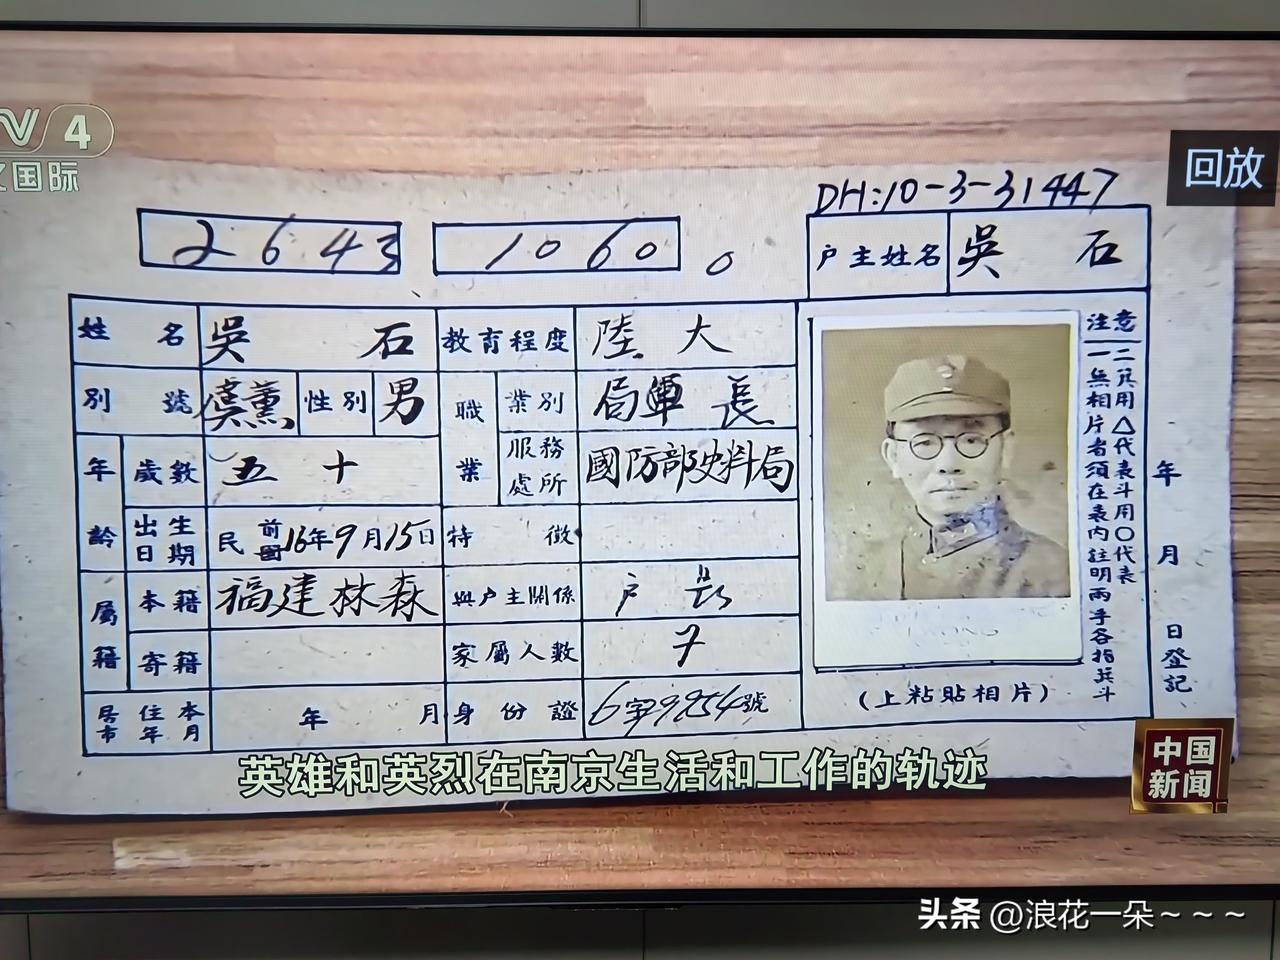 4
国际
回放
DH:10-3-31447
2643
1060
0
户主姓名 吳石
姓名 吳石 教育程度 陸大
別號 虞薰 性別 男 職業 業別 局長
年齡 歲數 五十 服務處所 國防部史料局
出生日期 民前16年9月15日 特徵
屬籍 本籍 福建林森 與户主關係 户長
寄籍 家屬人數 7
居住本市年月 年 月 身份證 6字9254號
注意
一無相片者須在表内註明兩手各指箕斗
二箕用△代表斗用〇代表
(上粘貼相片)
年 月 日登記
英雄和英烈在南京生活和工作的轨迹
中国新闻
头条 @浪花一朵～～～